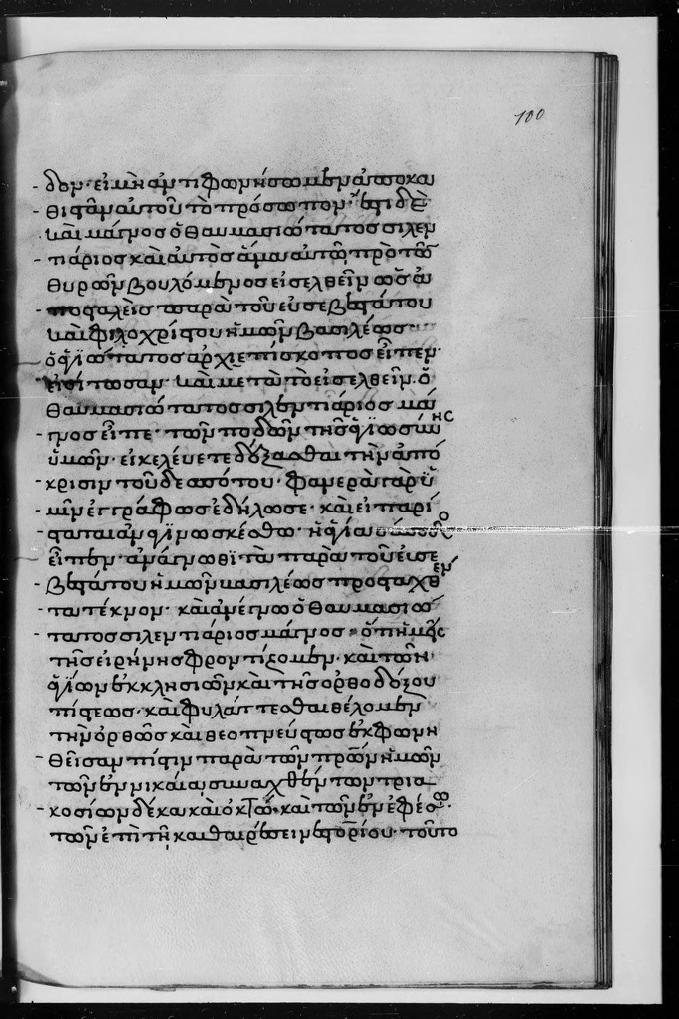 100
δον· εἰ μὴ ἀντιφωνήσωμεν ἀποκα
θιστᾶν αὐτοῦ τὸ πρόσωπον· ἔστι δὲ
καὶ μάγνος ὁ θαυμασιώτατος σιλεν
τιάριος καὶ αὐτὸς ἅμα αὐτῷ πρὸ τῶν
θυρῶν βουλόμενος εἰσελθεῖν ὡς ἀ
ποσταλεὶς παρὰ τοῦ εὐσεβεστάτου
καὶ φιλοχρίστου ἡμῶν βασιλέως
ὁ ἁγιώτατος ἀρχιεπίσκοπος εἶπεν
εἰσίτωσαν· καὶ μετὰ τὸ εἰσελθεῖν· ὁ
θαυμασιώτατος σιλεντιάριος μά
γνος εἶπε· τῶν ποδῶν τῆς ἁγιωσύνης
ὑμῶν· ἐκέλευετε δέξασθαι τὴν ἀπό
κρισιν τοῦ δεσπότου· φανερὰ γὰρ ὑ
μῖν ἐγγράφως ἐδήλωσε· καὶ εἰ παρί
σταται ἀναγινωσκέσθω· ἡ ἁγία σύνοδος
εἶπεν· ἀναγνωσθῇ τὰ παρὰ τοῦ εὐσε
βεστάτου ἡμῶν βασιλέως προσταχθέν
τα τέκνον· καὶ ἀνέγνω ὁ θαυμασιώ
τατος σιλεντιάριος μάγνος· ὅτι ἡμεῖς
τῆς εἰρήνης φροντίζομεν· καὶ τῶν
ἁγίων ἐκκλησιῶν καὶ τῆς ὀρθοδόξου
πίστεως· καὶ φυλάττεσθαι θέλομεν
τὴν ὀρθῶς καὶ θεοπνεύστως ἐκφωνη
θεῖσαν πίστιν παρὰ τῶν πρων ἡμῶν
τῶν ἐν νικαίᾳ συναχθέντων τρια
κοσίων δέκα καὶ ὀκτώ· καὶ τῶν ἐν ἐφέσω·
τῶν ἐπὶ τῇ καθαιρέσει νεστορίου· τοῦτο